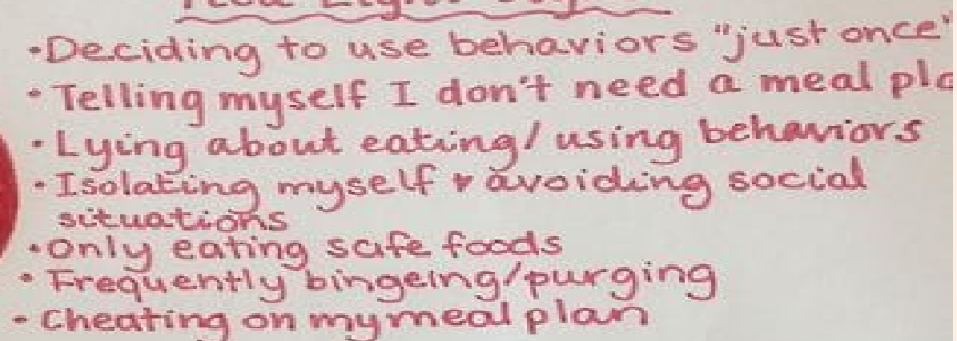 •Deciding to use behaviors "just once"
•Telling myself I don't need a meal
•Lying about eating/using behaviors
•Isolating myself + avoiding social
situations
•Only eating safe foods
•Frequently bingeing/purging
•Cheating on my meal plan